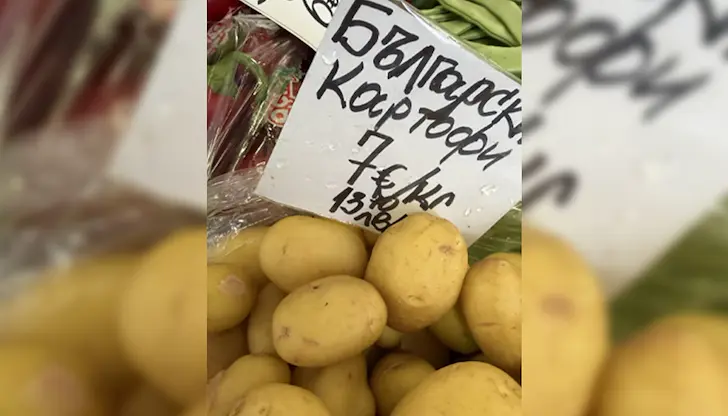 Българск
Картофи
7 €/кг
13.70
лв/